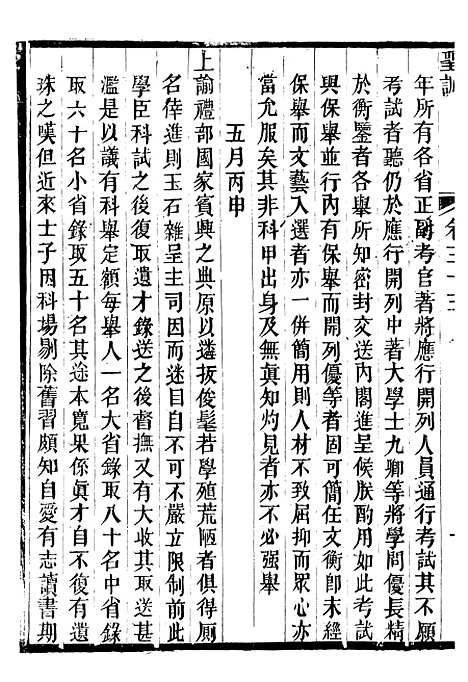 聖訓
卷三十三
年所有各省正副考官著將應行開列人員通行考試其不願
考試者聽仍於應行開列中著大學士九卿等將學問優長精
於衡鑒者各舉所知密封交送內閣進呈候朕酌用如此考試
與保舉並行內有保舉而開列優等者固可簡任文衡卽未經
保舉而文藝入選者亦一倂簡用則人材不致屈抑而眾心亦
當允服矣其非科甲出身及無眞知灼見者亦不必强舉
五月丙申
上諭禮部國家賓興之典原以遴拔俊髦若學殖荒陋者俱得厠
名倖進則玉石雜呈主司因而迷目自不可不嚴立限制前此
學臣科試之後復取遺才錄送之後督撫又有大收其取送甚
濫是以議有科舉定額每舉人一名大省錄取八十名中省錄
取六十名小省錄取五十名其途本寬果係眞才自不復有遺
珠之嘆但近來士子因科場剔除舊習頗知自愛有志讀書期